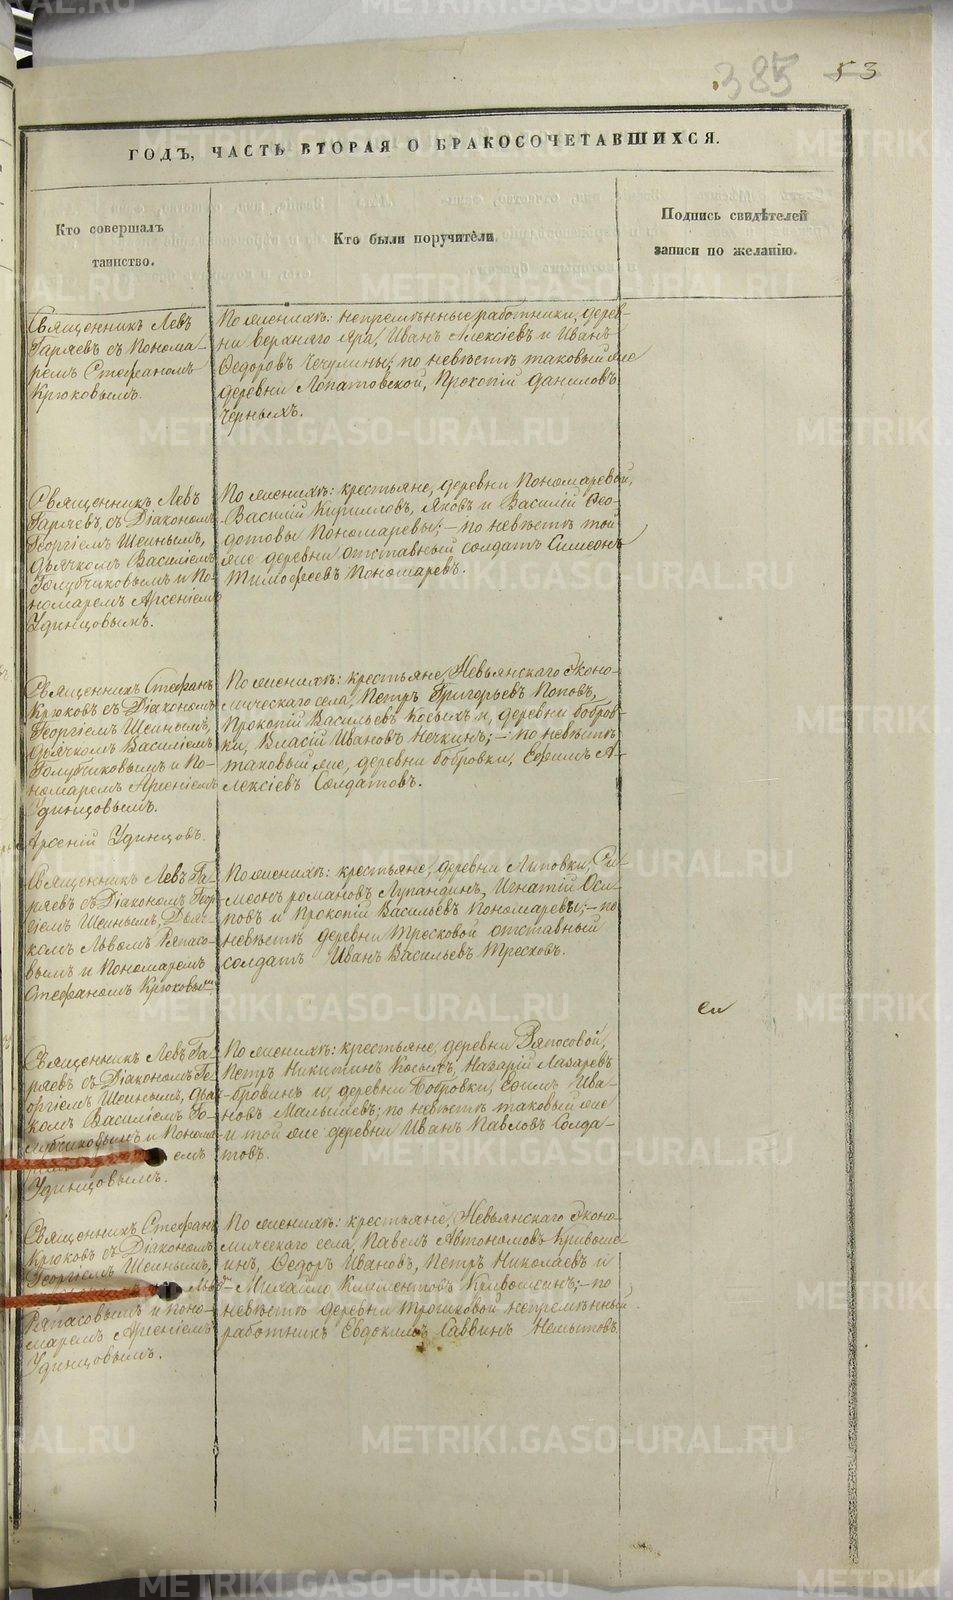 385 53
ГОДЪ, ЧАСТЬ ВТОРАЯ О БРАКОСОЧЕТАВШИХСЯ.
Кто совершалъ
таинство.
Кто были поручители
Подпись свидѣтелей
записи по желанію.
Священникъ Левъ
Гаряевъ съ Понома-
ремъ Стефаномъ
Крюковымъ.
По женихѣ: непремѣнные работники, дерев-
ни Верхняго Яра, Иванъ Алексіевъ и Иванъ
Ѳедоровъ Чечулины; по невѣстѣ таковый же
деревни Лопатовской, Прокопій Даниловъ
Черныхъ.
Священникъ Левъ
Гаряевъ, съ Діакономъ
Георгіемъ Шеинымъ,
Дьячкомъ Василіемъ
Голубчиковымъ и По-
номаремъ Арсеніемъ
Удинцовымъ.
По женихѣ: крестьяне, деревни Пономаревой,
Василій Кириловъ, Яковъ и Василій Ѳео-
дотовы Пономаревы; – по невѣстѣ той
же деревни отставный солдатъ Симеонъ
Тимофеевъ Пономаревъ.
Священникъ Стефанъ
Крюковъ съ Діакономъ
Георгіемъ Шеинымъ,
Дьячкомъ Василіемъ
Голубчиковымъ и По-
номаремъ Арсеніемъ
Удинцовымъ.
Арсеній Удинцовъ.
По женихѣ: крестьяне, Невьянскаго Эконо-
мическаго села, Петръ Григорьевъ Поповъ,
Прокопій Васильевъ Косыхъ и, деревни Бобров-
ки, Власій Ивановъ Нечкинъ; – по невѣстѣ
таковый же, деревни Бобровки, Ефимъ А-
лексіевъ Солдатовъ.
Священникъ Левъ Га-
ряевъ съ Діакономъ Геор-
гіемъ Шеинымъ, Дьяч-
комъ Львомъ Ряпасо-
вымъ и Пономаремъ
Стефаномъ Крюковымъ
По женихѣ: крестьяне, деревни Липовки, Си-
меонъ Романовъ Лупандинъ, Игнатій Оси-
повъ и Прокопій Васильевъ Пономаревы; – по
невѣстѣ деревни Тресковой отставный
солдатъ Иванъ Васильевъ Тресковъ.
Священникъ Левъ Га-
ряевъ съ Діакономъ Ге-
оргіемъ Шеинымъ, Дьяч-
комъ Василіемъ Го-
лубчиковымъ и Понома-
емъ
Удинцовымъ.
По женихѣ: крестьяне, деревни Ряпосовой,
Петръ Никитинъ Косыхъ, Назарій Лазаревъ
Бровинъ и, деревни Бобровки, Ефимъ Ива-
новъ Малышевъ; по невѣстѣ таковый же
и той же деревни Иванъ Павловъ Солда-
товъ.
Священникъ Стефанъ
Крюковъ съ Діакономъ
Георгіемъ Шеинымъ,
Льво-
Ряпасовымъ и Поно-
маремъ Арсеніемъ
Удинцовымъ.
По женихѣ: крестьяне, Невьянскаго Эконо-
мическаго села, Павелъ Автономовъ Кривоше-
инъ, Ѳедоръ Ивановъ, Петръ Николаевъ и
Михайло Климентовъ Кривошеинъ; – по
невѣстѣ деревни Трошковой непремѣнный
работникъ Евдокимъ Саввинъ Немытовъ.
METRIKI.GASO-URAL.RU